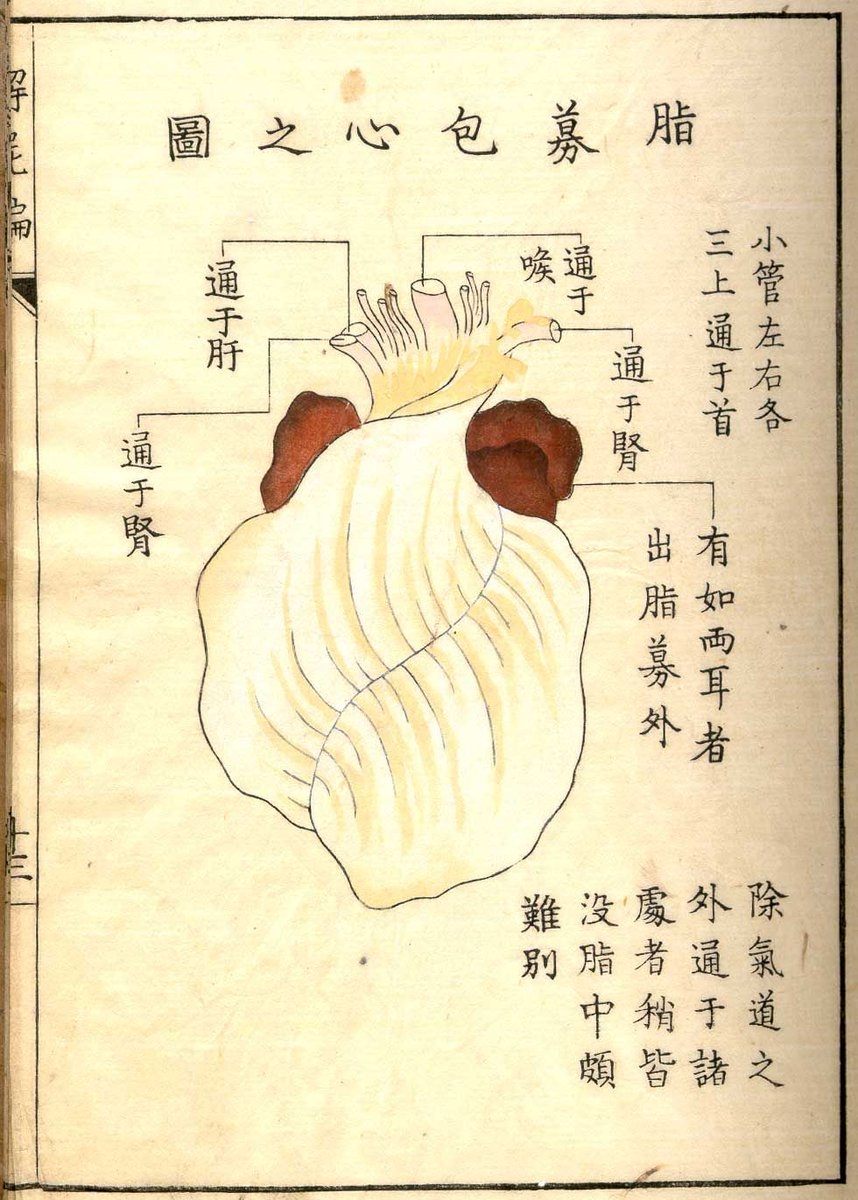 脂募包心之圖
小管左右各
三上通于首
通于
喉
通于肝
通于腎
通于腎
有如両耳者
出脂募外
除氣道之
外通于諸
處者稍皆
没脂中頗
難別
解屍編